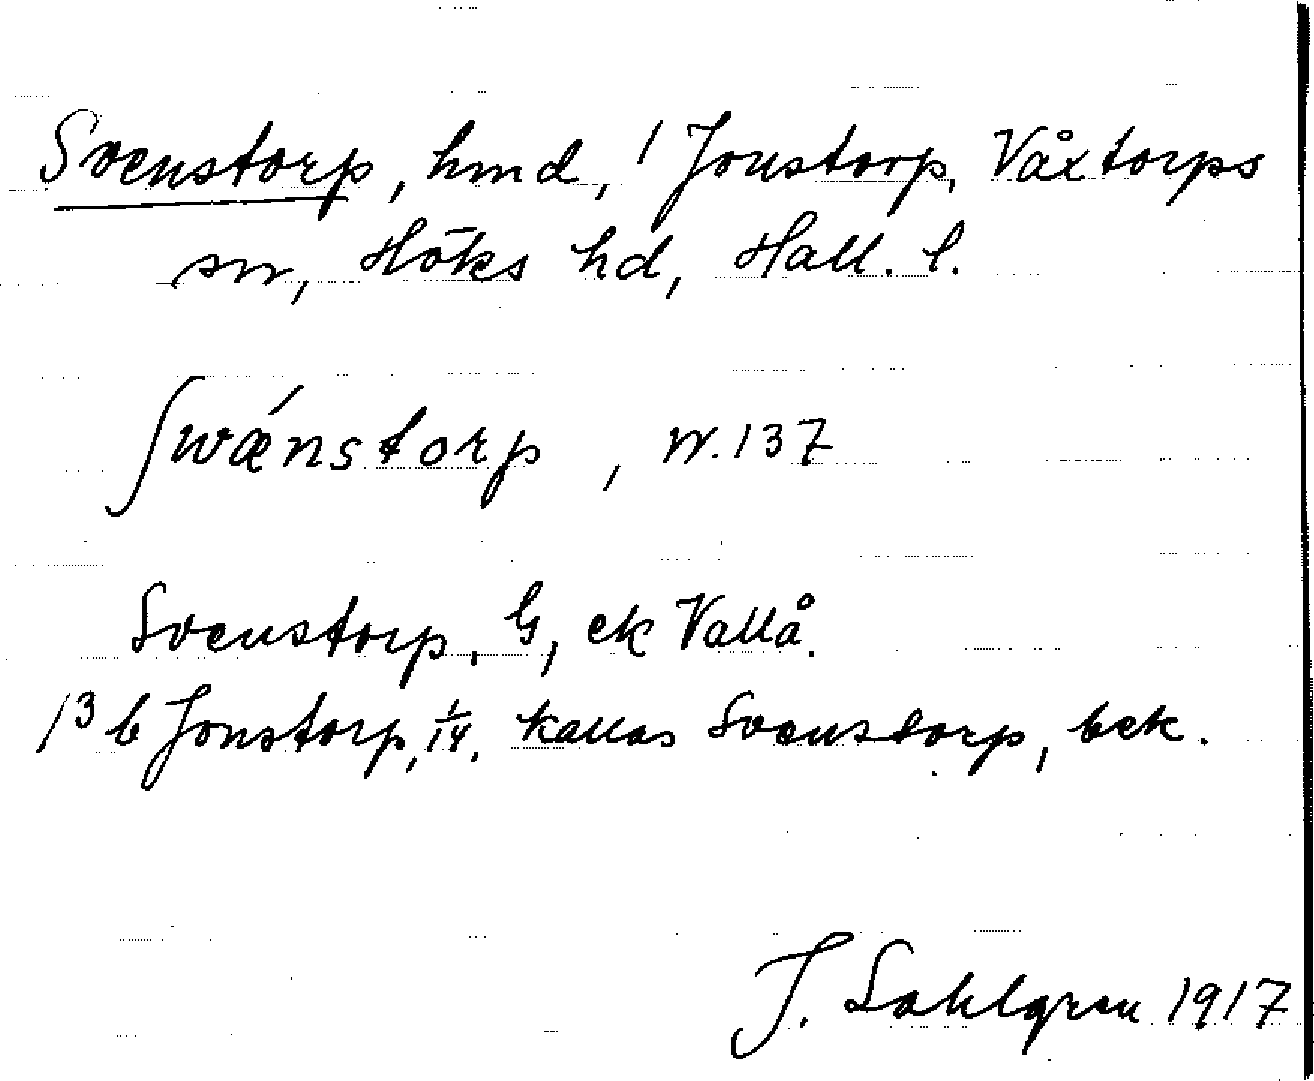 Svenstorp, hmd, 1 Jonstorp, Våxtorps
sn, Höks hd, Hall. l.
Swǽnstorp, N. 137
Svenstorp, G, ek Vallå.
1³ b Jonstorp, 1/14, kallas Svenstorp, bek.
J. Sahlgren 1917